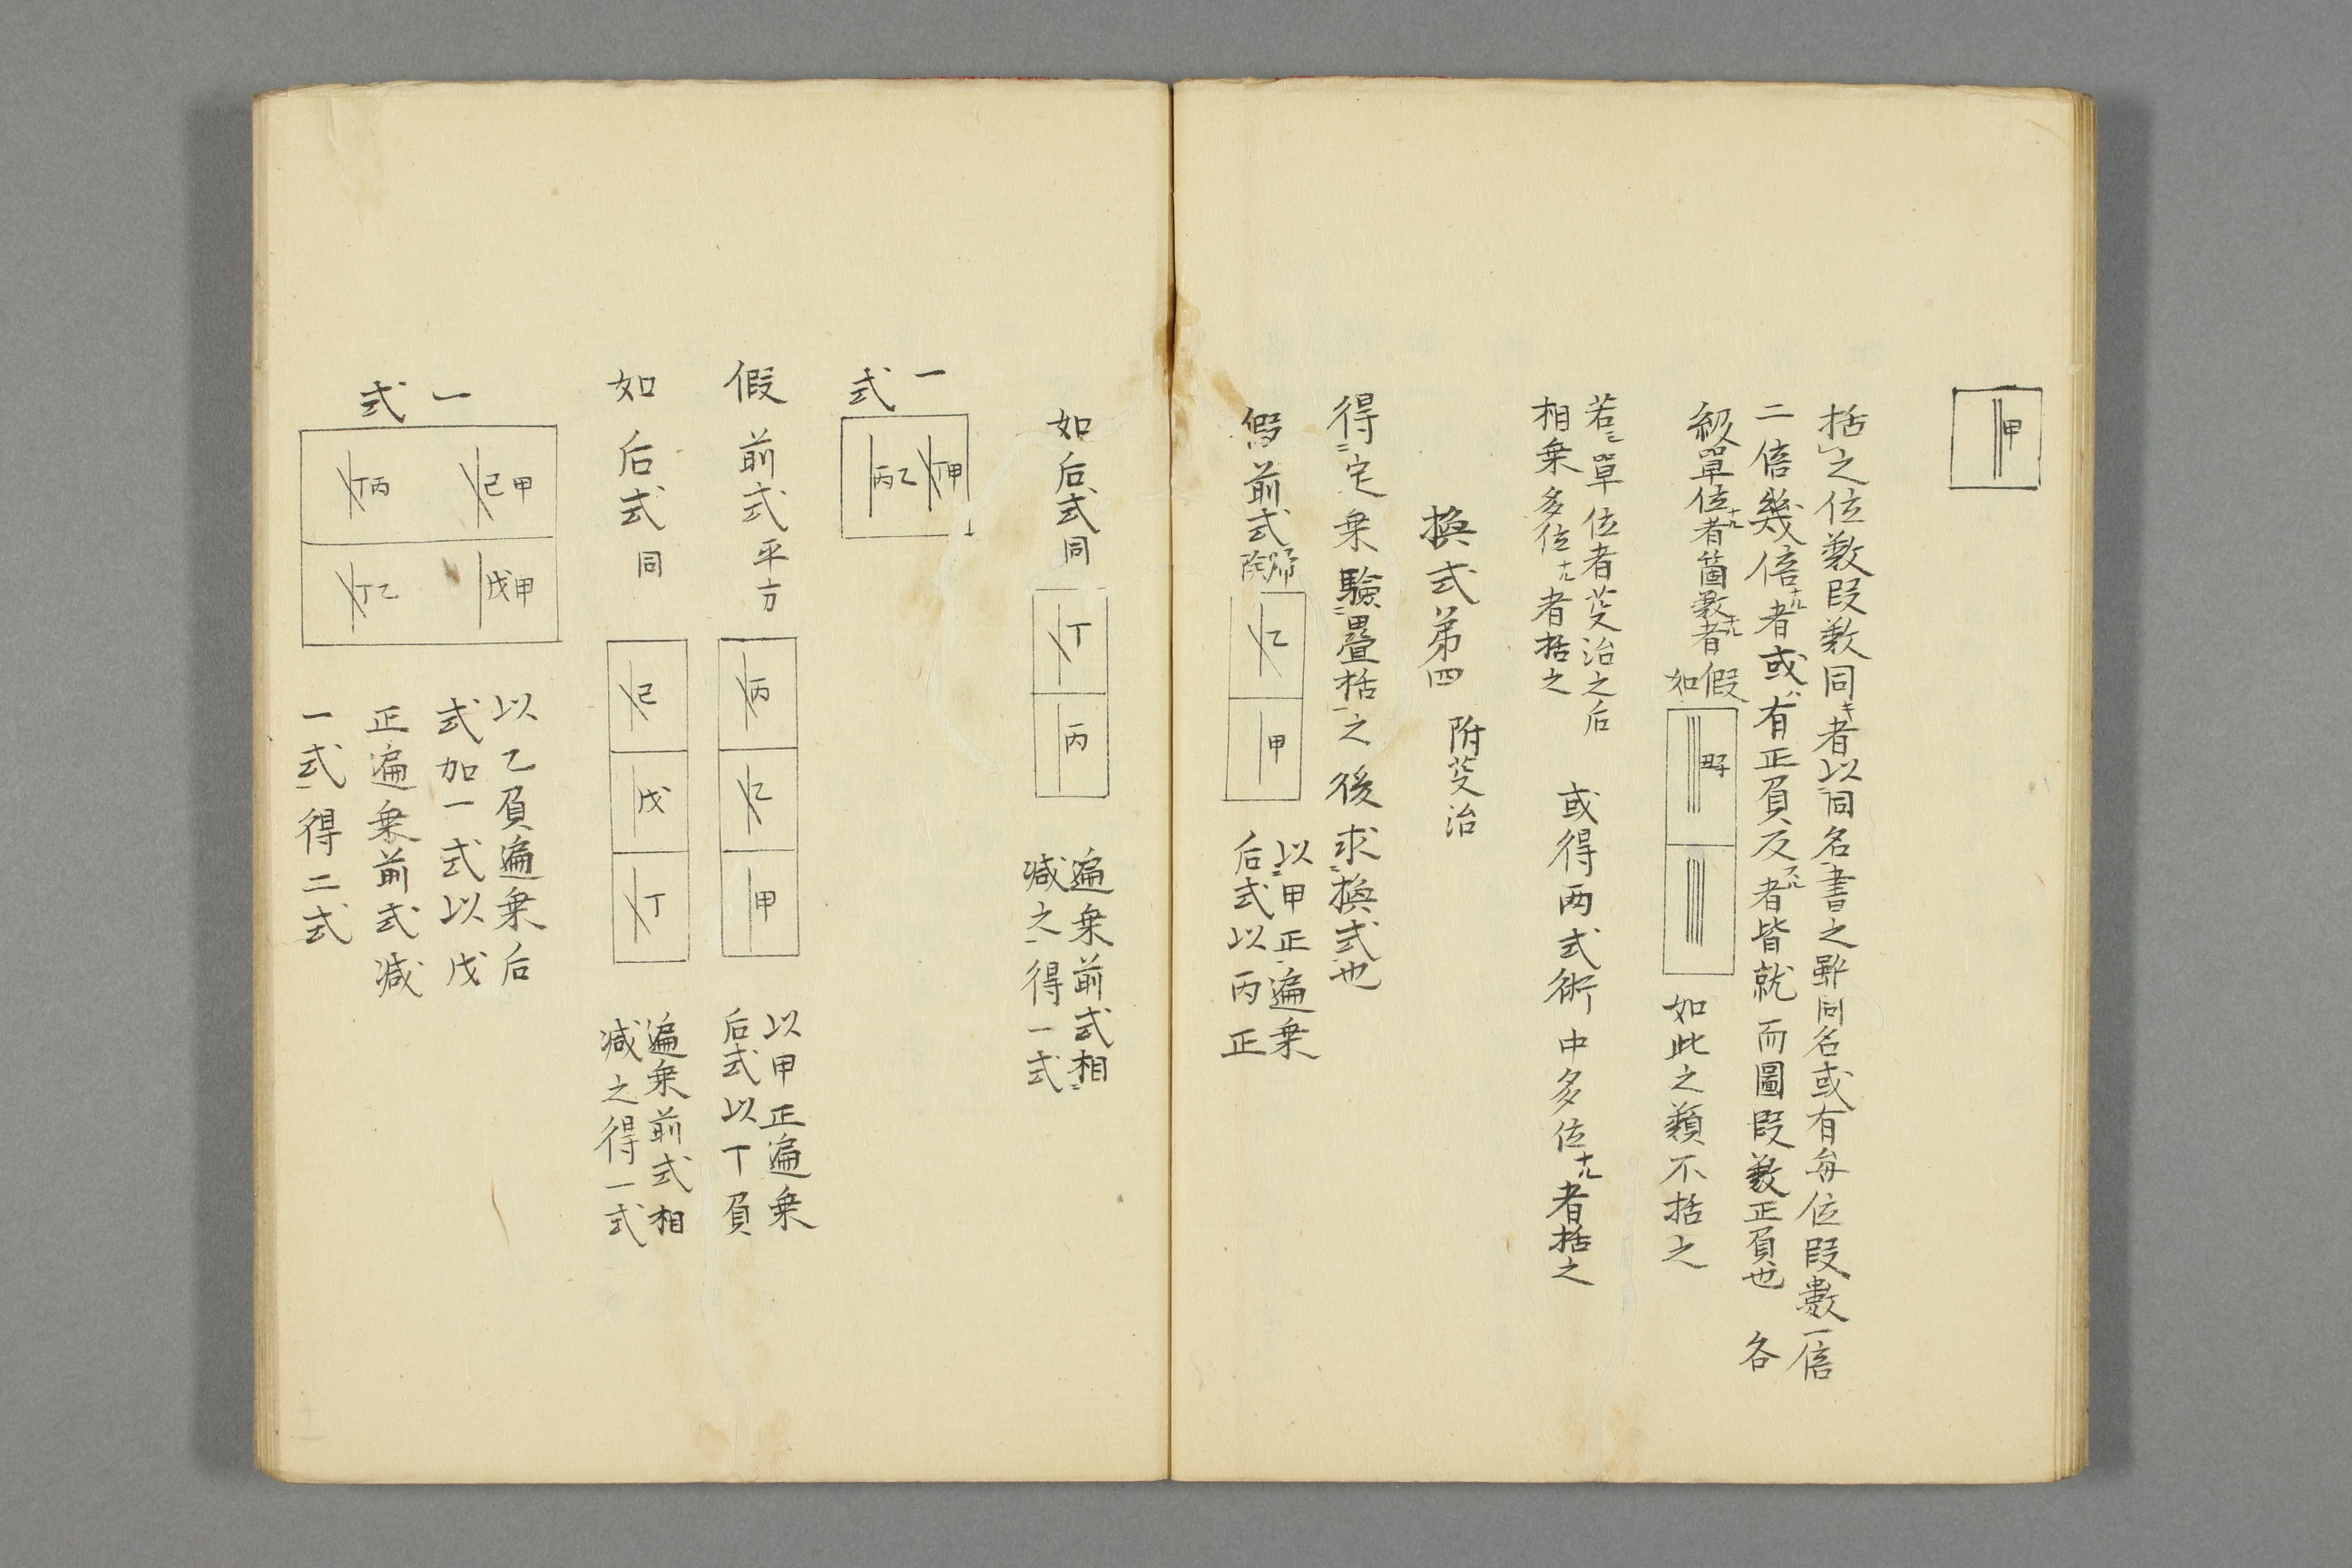 甲
括之位數段數同キ者以同名書之雖同名或有每位段數一倍
二倍幾倍ナル者或ハ有正負反スル者皆就而圖段數正負也 各
級單位ナル者箇數ナル者假如
如此之類不括之
若單位者芟治之后
相乗多位ナル者括之
或得両式術中多位ナル者括之
換式第四 附芟治
得定乗驗疊括之後求換式也
假前式歸除 乙 甲
以甲正遍乗
后式以丙正
如后式同 丁 丙
遍乗前式相
减之得一式
一式
甲丁
乙丙
假前式平方 丙 乙 甲
以甲正遍乗
后式以丁負
如后式同 己 戊 丁
遍乗前式相
减之得一式
一式
甲己 丙丁
甲戊 乙丁
以乙負遍乗后
式加一式以戊
正遍乗前式减
一式得二式